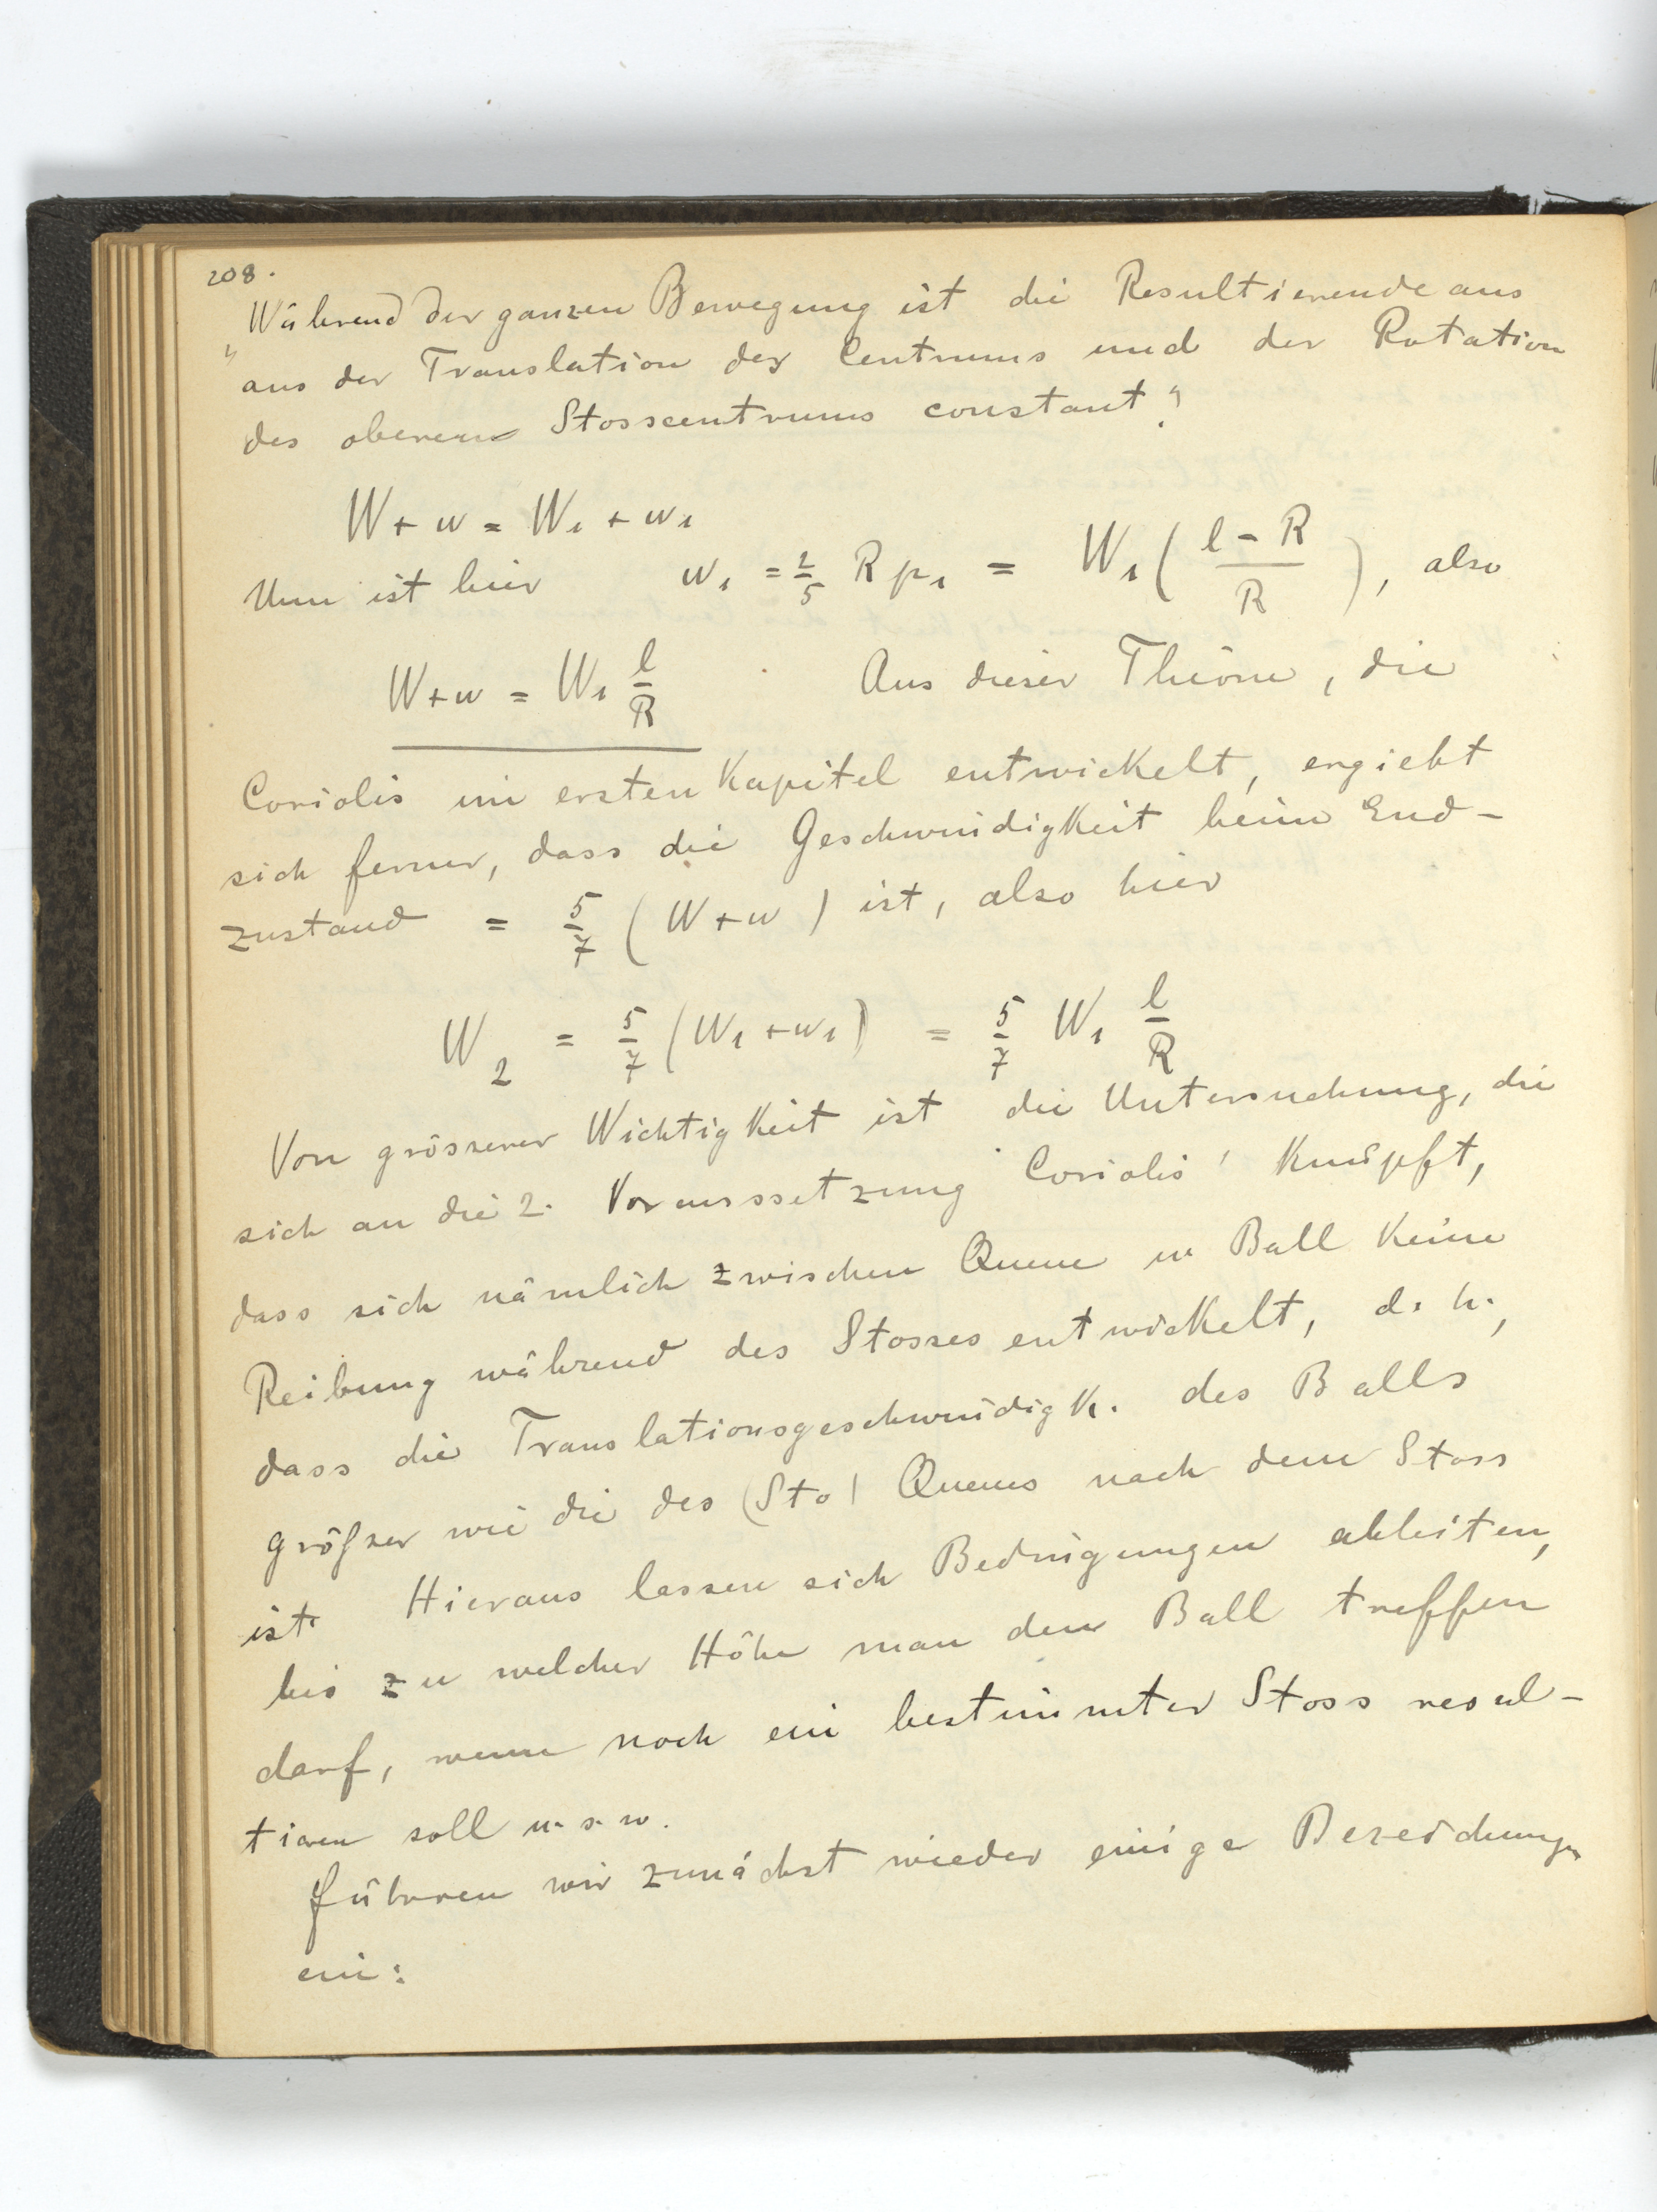 208.
„Während der ganzen Bewegung ist die Resultierende aus
aus der Translation des Centrums und der Rotation
des oberen Stosscentrums constant."
W + w = W₁ + w₁
Nun ist hier w₁ = 2/5 R p₁ = W₁ ( (l - R)/R ), also
W + w = W₁ l/R Aus dieser Theorie, die
Coriolis im ersten Kapitel entwickelt, ergiebt
sich ferner, dass die Geschwindigkeit beim End-
zustand = 5/7 (W + w) ist, also hier
W₂ = 5/7 (W₁ + w₁) = 5/7 W₁ l/R
Von grösserer Wichtigkeit ist die Untersuchung, die
sich an die 2. Voraussetzung Coriolis' knüpft,
dass sich nämlich zwischen Queue u. Ball keine
Reibung während des Stosses entwickelt, d. h.,
dass die Translationsgeschwindigk. des Balls
größer wie die des (Sto) Queues nach dem Stoss
ist. Hieraus lassen sich Bedingungen ableiten,
bis zu welcher Höhe man den Ball treffen
darf, wenn noch ein bestimmter Stoss resul-
tieren soll u. s. w.
Führen wir zunächst wieder einige Bezeichnungen
ein: